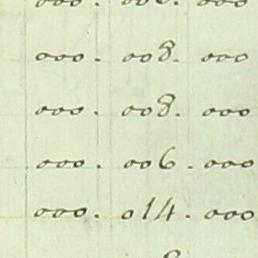 000. 008. 000
000. 008. 000
000. 006. 000
000. 014. 000